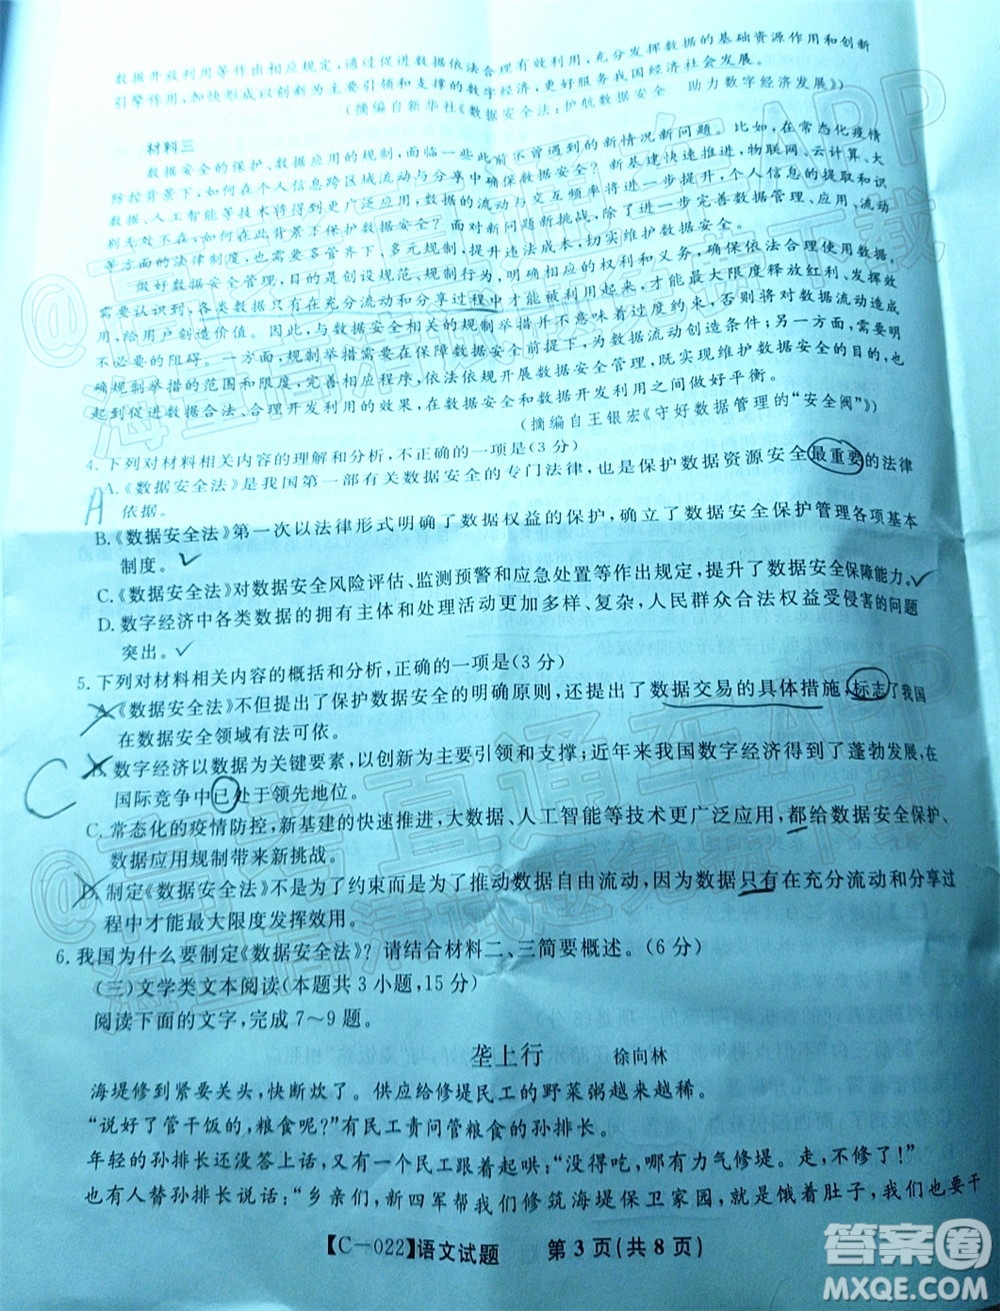 数据开放利用等作出相应规定,通过促进数据依法合理有效利用,充分发挥数据的基础资源作用和创新
引擎作用,加快形成以创新为主要引领和支撑的数字经济,更好服务我国经济社会发展。
(摘编自新华社《数据安全法:护航数据安全 助力数字经济发展》)
材料三
数据安全的保护、数据应用的规制,面临一些此前不曾遇到的新情况新问题。比如,在常态化疫情
防控背景下,如何在个人信息跨区域流动与分享中确保数据安全?新基建快速推进,物联网、云计算、大
数据、人工智能等技术将得到更广泛应用,数据的流动与交互频率将进一步提升,个人信息的提取和识
别无处不在,如何在此背景下保护数据安全?面对新问题新挑战,除了进一步完善数据管理、应用、流动
等方面的法律制度,也需要多管齐下、多元规制,提升违法成本,切实维护多方权利。
做好数据安全管理,目的是创设规范、精细的规则,合理分配权利和义务,确保依法合理使用数据。
需要认识到,各类数据只有在充分流动和分享过程中才能被创新开发利用,最大限度释放红利、发挥效
用,给用户创造价值。因此,与数据安全相关的规制举措并不意味着过度约束,形成对数据流动造成
不必要的阻碍。一方面,需要在保障数据安全的前提下,为数据流动创造条件;另一方面,需要明
确规制举措的范围和限度,完善相应程序,依法依规开展数据安全管理,更好发挥制度的正面效应,
起到促进数据合法、合理开发利用的效果,在数据安全和数据开发利用之间做好平衡。
(摘编自王银宏《守好数据管理的“安全阀”》)
4. 下列对材料相关内容的理解和分析,不正确的一项是(3分)
A
A.《数据安全法》是我国第一部有关数据安全的专门法律,也是保护数据资源安全最重要的法律
依据。
B.《数据安全法》第一次以法律形式明确了数据权益的保护,确立了数据安全保护管理各项基本
制度。
C.《数据安全法》对数据安全风险评估、监测预警和应急处置等作出规定,提升了数据安全保障能力。
D. 数字经济中各类数据的拥有主体和处理活动更加多样、复杂,人民群众合法权益受侵害的问题
突出。
5. 下列对材料相关内容的概括和分析,正确的一项是(3分)
A.《数据安全法》不但提出了保护数据安全的明确原则,还提出了数据交易的具体措施,标志了我国
在数据安全领域有法可依。
C
B. 数字经济以数据为关键要素,以创新为主要引领和支撑;近年来我国数字经济得到了蓬勃发展,在
国际竞争中已处于领先地位。
C. 常态化的疫情防控,新基建的快速推进,大数据、人工智能等技术更广泛应用,都给数据安全保护、
数据应用规制带来新挑战。
D. 制定《数据安全法》不是为了约束而是为了推动数据自由流动,因为数据只有在充分流动和分享过
程中才能最大限度发挥效用。
6. 我国为什么要制定《数据安全法》?请结合材料二、三简要概述。(6分)
(三)文学类文本阅读(本题共3小题,15分)
阅读下面的文字,完成7~9题。
垄上行 徐向林
海堤修到紧要关头,快断炊了。供应给修堤民工的野菜粥越来越稀。
“说好了管干饭的,粮食呢?”有民工责问管粮食的孙排长。
年轻的孙排长还没答上话,又有民工跟着起哄:“没得吃,哪有力气修堤。走,不修了!”
也有人替孙排长说话:“乡亲们,新四军帮我们修筑海堤保卫家园,就是饿着肚子,我们也要干
【C-022】语文试题 第3页(共8页)
答案圈
MXQE.COM